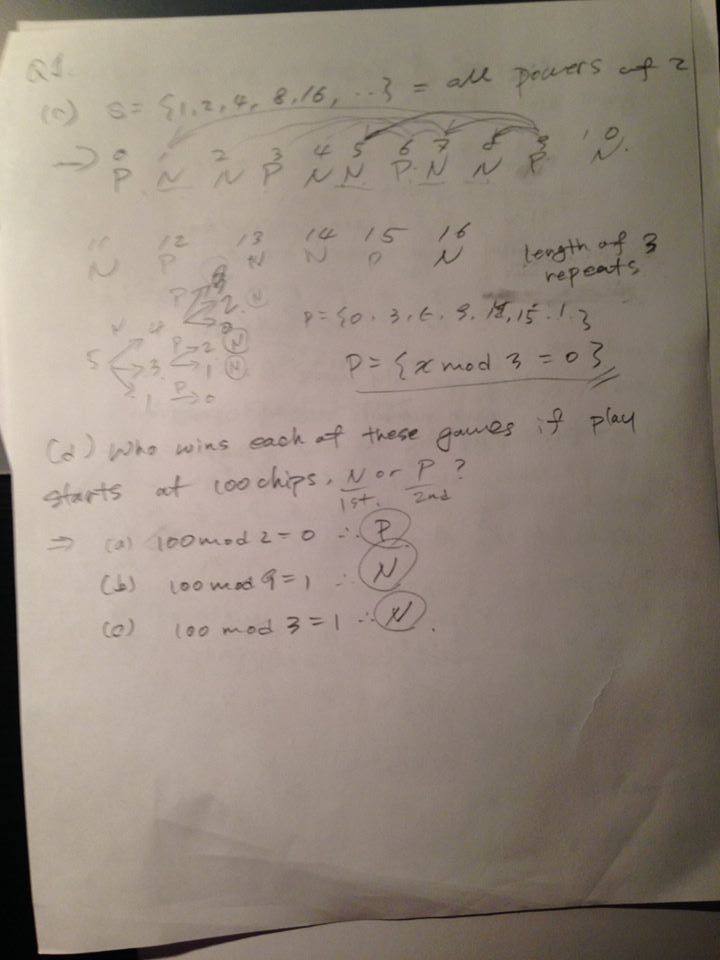 Q1.
(c) S = {1, 2, 4, 8, 16, ...} = all powers of 2
→ 0 1 2 3 4 5 6 7 8 9 10
P N N P N N P N N P N.
11 12 13 14 15 16
N P N N P N
length of 3
repeats
P = {0, 3, 6, 9, 12, 15, ...}
P = {x mod 3 = 0}
P 2 N
N 4
5 3 P 2 N
1 N
1 P 0
(d) Who wins each of these games if play
starts at 100 chips, N or P?
1st. 2nd
⇒ (a) 100 mod 2 = 0 ∴ P
(b) 100 mod 9 = 1 ∴ N
(c) 100 mod 3 = 1 ∴ N.